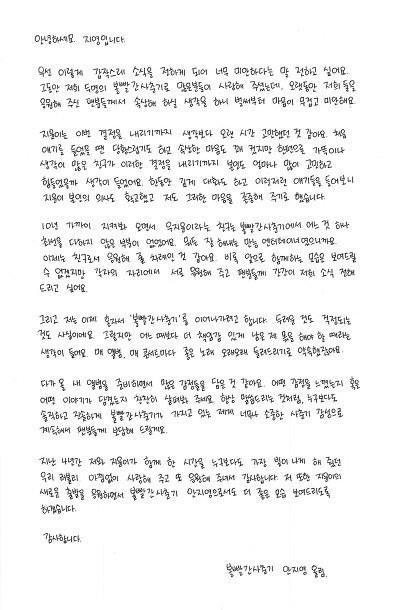 안녕하세요. 지영입니다.
우선 이렇게 갑작스레 소식을 전하게 되어 너무 미안하다는 말 전하고 싶어요.
그동안 저희 두명의 볼빨간사춘기로 많은분들이 사랑해 주셨는데, 오랫동안 저희 둘을
응원해 주신 팬분들께서 속상해 하실 생각을 하니 벌써부터 마음이 무겁고 미안해요.
지윤이는 이번 결정을 내리기까지 생각보다 오랜 시간 고민했던 것 같아요. 처음
얘기를 들었을 땐 당황스럽기도 하고 속상한 마음도 꽤 컸지만 한편으로 가뜩이나
생각이 많은 친구가 이러한 결정을 내리기까지 본인도 얼마나 많이 고민하고
힘들었을까 생각이 들었어요. 한동안 깊게 대화도 하고 이런저런 얘기들을 들어보니
지윤이 본인의 의사도 확고했고 저도 그러한 마음을 존중해 주기로 했습니다.
10년 가까이 지켜봐 오면서 우지윤이라는 친구는 볼빨간사춘기에서 어느 것 하나
최선을 다하지 않은 부분이 없었어요. 뭐든 잘 해내는 만능 엔터테이너였으니까요.
이제는 친구로서 응원해 줄 차례인 것 같아요. 비록 앞으로 함께하는 모습은 보여드릴
수 없겠지만 각자의 자리에서 서로 응원해 주고 팬분들께 간간이 저희 소식 전해
드리고 싶어요.
그리고 저는 이제 혼자서 '볼빨간사춘기'를 이어나가려고 합니다. 두려울 것도 걱정되는
것도 사실이에요. 그렇지만 어느때보다 더 책임감 있게 남은 제 몫을 해야 할 때라는
생각이 들어요. 매 앨범, 매 콘서트마다 좋은 노래 오래오래 들려드리기로 약속했잖아요.
다가 올 내 앨범을 준비하면서 많은 감정들을 담은 것 같아요. 어떤 감정을 느꼈는지 혹은
어떤 이야기가 담겼는지 찬찬히 살펴봐 주세요. 항상 말씀드리는 것처럼, 누구보다도
솔직하고 진솔하게 볼빨간사춘기가 가지고 있는 제게 너무나 소중한 사춘기 감성으로
계속해서 팬분들께 보답해 드릴게요.
지난 4년간 저와 지윤이가 함께 한 시간을 누구보다도 가장 빛이나게 해 줬던
우리 러볼리 아낌없이 사랑해 주고 또 응원해 주셔서 감사합니다. 저 또한 지윤이의
새로운 출발을 응원하면서 볼빨간사춘기 안지영으로서도 더 좋은 모습 보여드리도록
하겠습니다.
감사합니다.
볼빨간사춘기 안지영 올림.